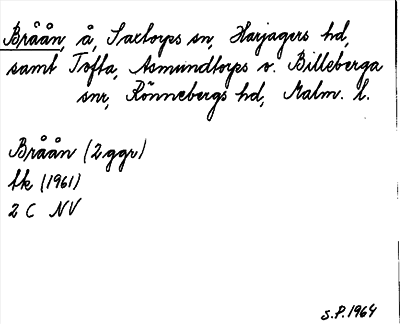 Bråån, å, Saxtorps sn, Harjagers hd,
samt Tofta, Asmundtorps o. Billeberga
snr, Rönnebergs hd, Malm. l.
Bråån (2 ggr)
Ek (1961)
2 C NV
S.P. 1964